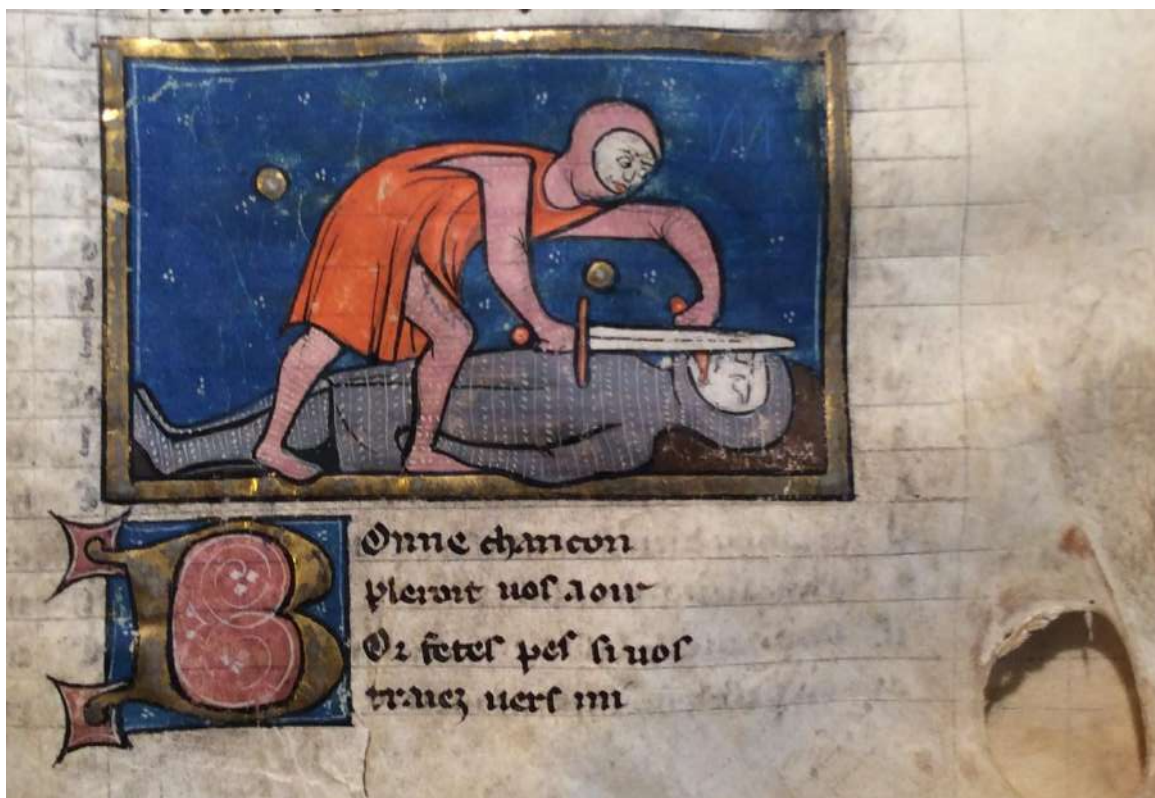 Bonne chancon
pleroit uos a oir
Or fetes pes si uos
traiez uers mi